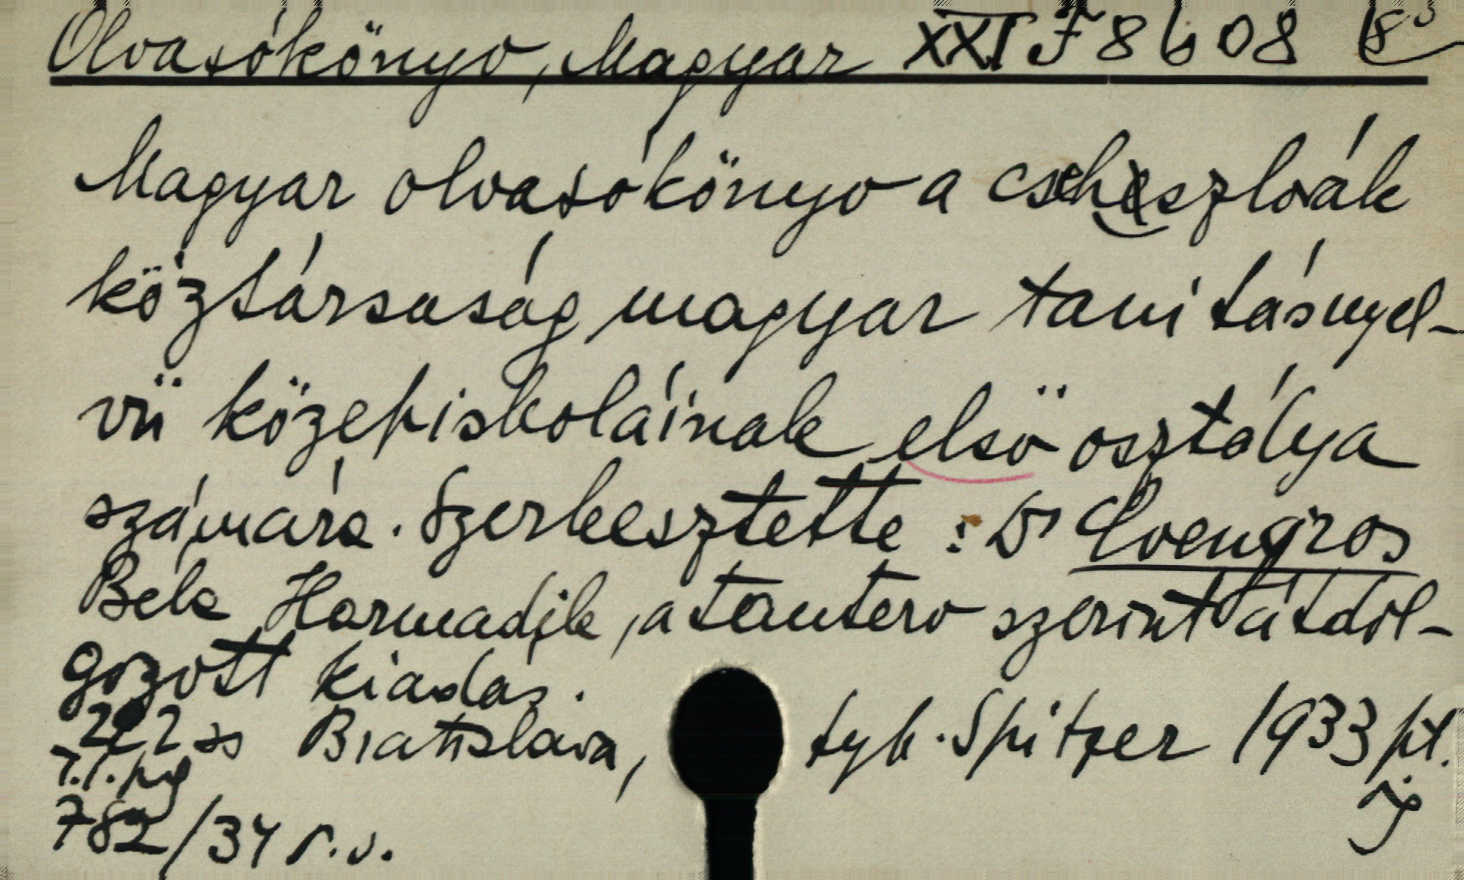 Olvasókönyv, Magyar XXI F 8608
Magyar olvasókönyv a csehszlovák
köztársaság magyar tanitásnyel-
vü középiskoláinak elsö osztálya
számára. Szerkesztette: Dr Loengros
Bela Harmadik, a tanterv szerint átdol-
gozott kiadás.
212 ss Bratislava, typ. Spitzer 1933 pt.
782/34 r.s.